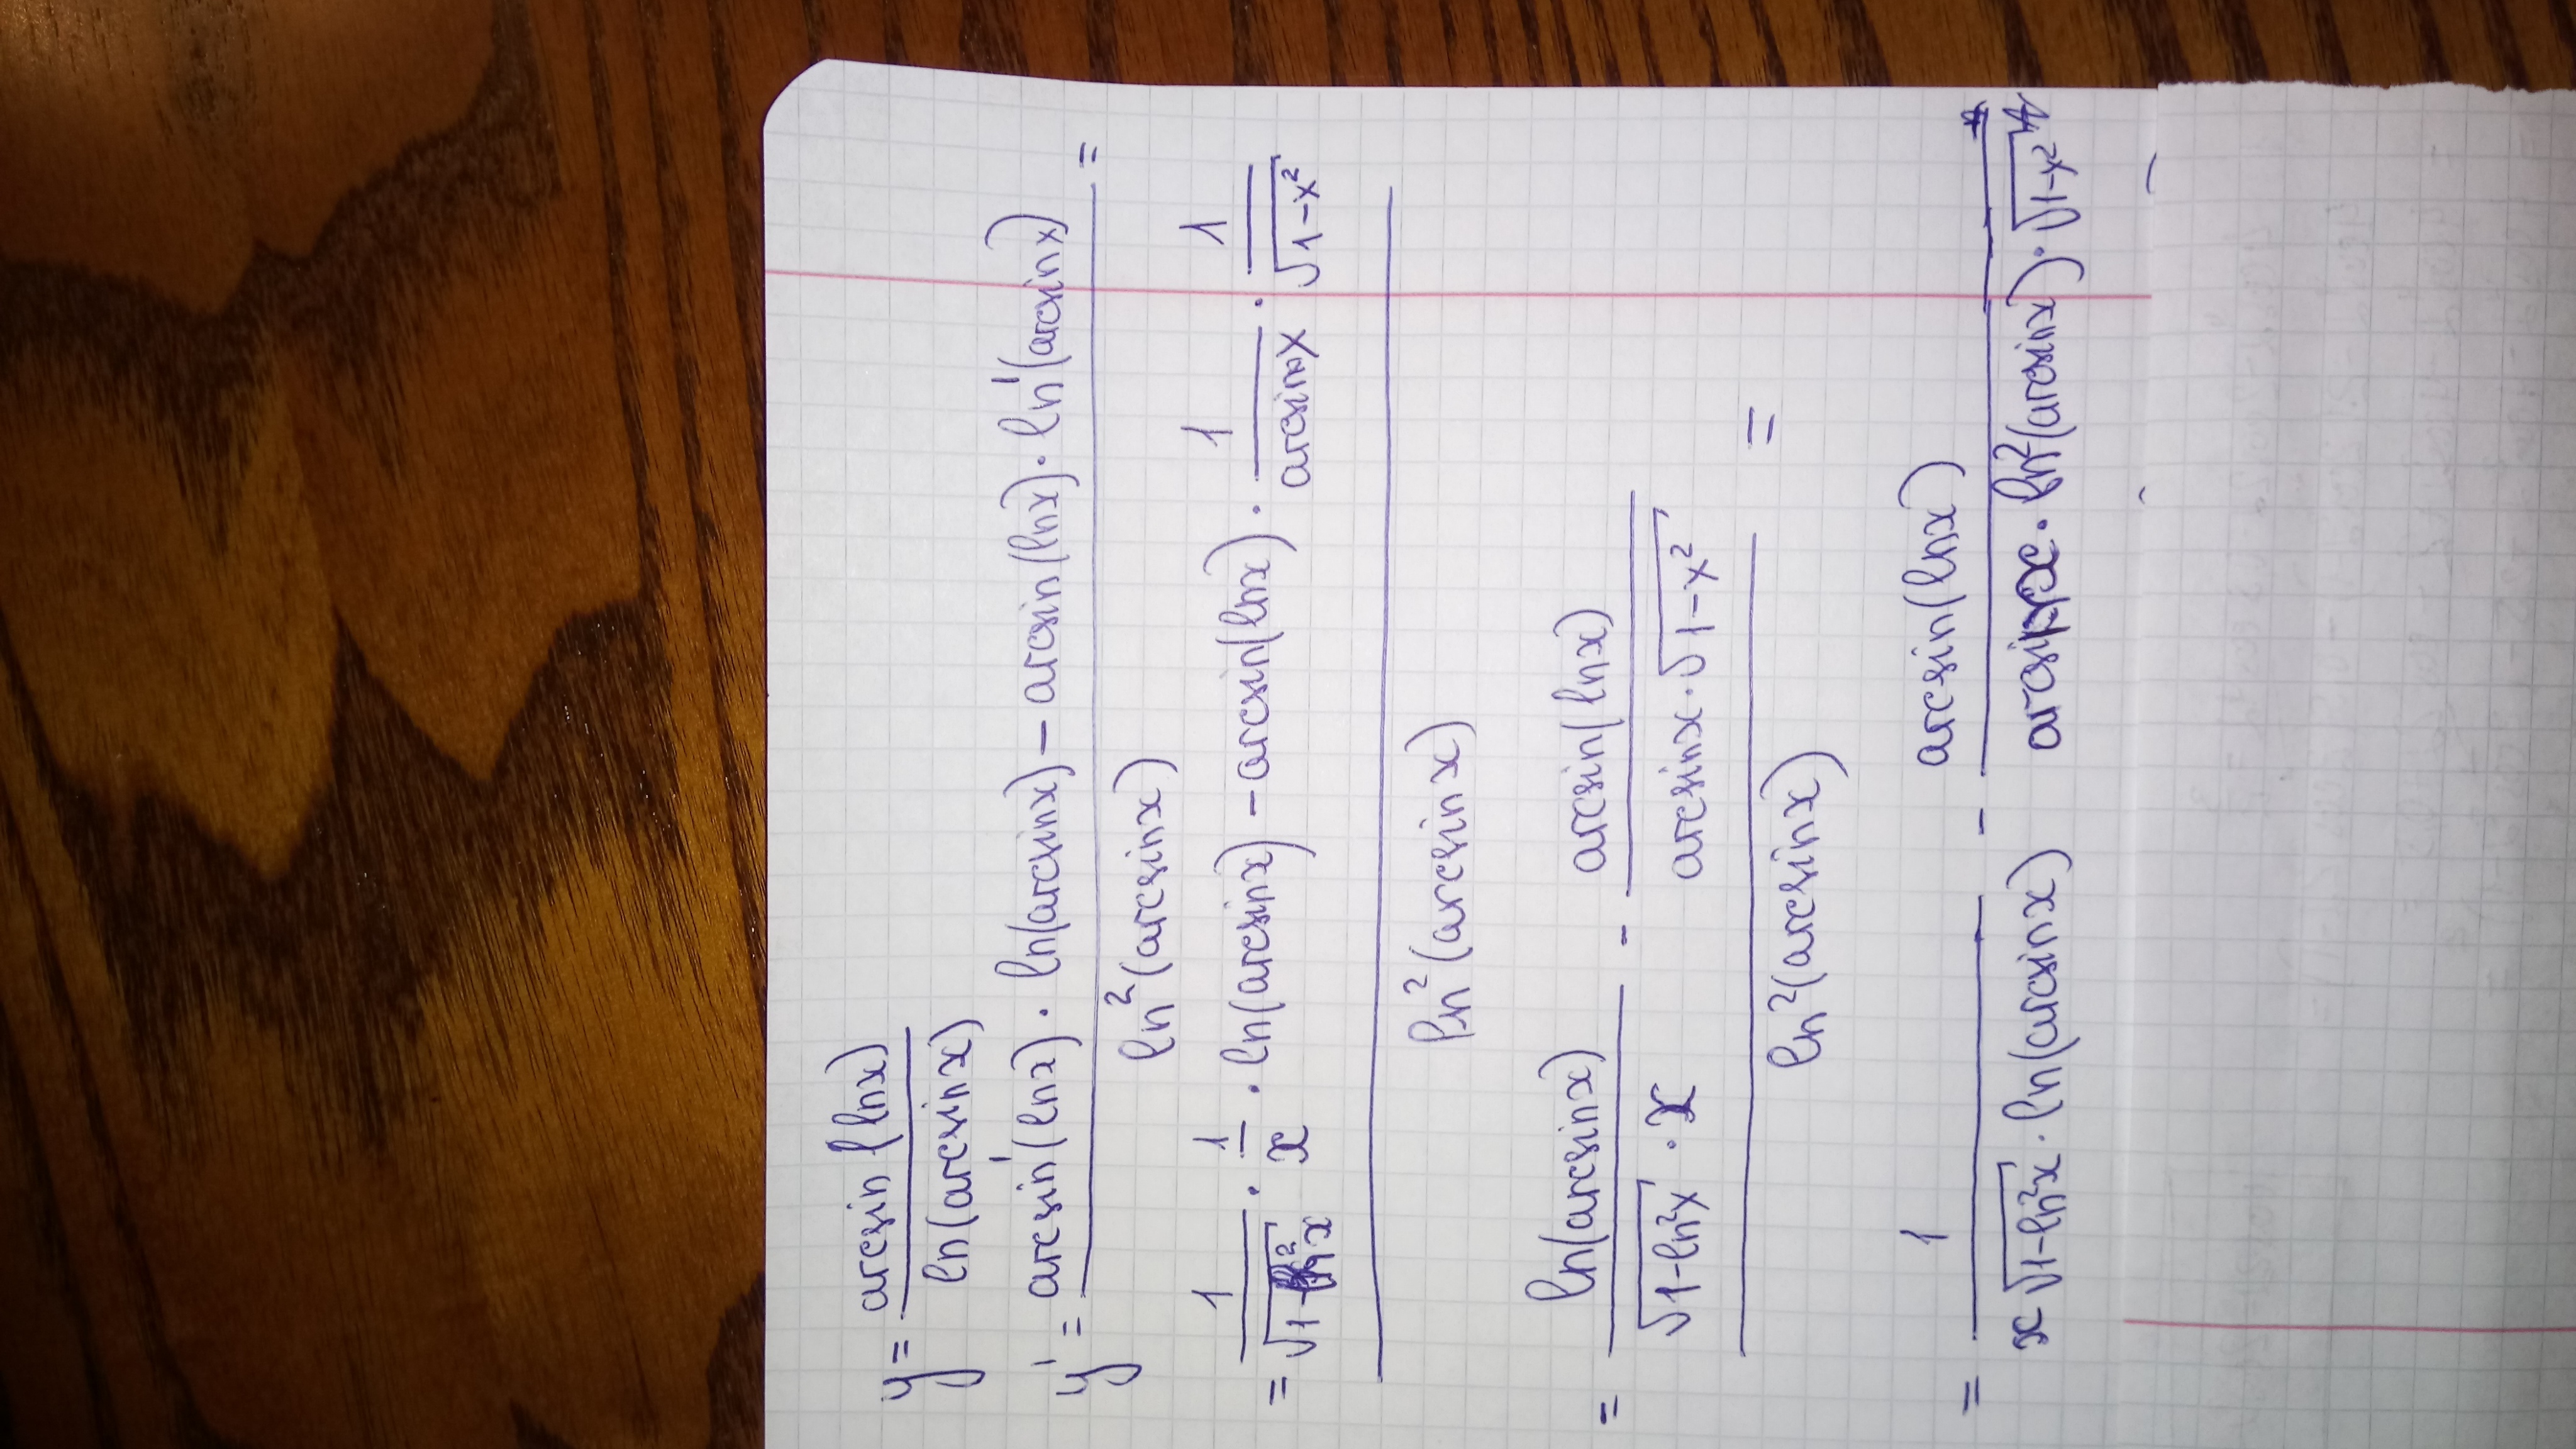 y = arcsin(ln x) / ln(arcsin x)
y' = (arcsin'(ln x) · ln(arcsin x) − arcsin(ln x) · ln'(arcsin x)) / ln²(arcsin x) =
= (1/√(1−ln²x) · 1/x · ln(arcsin x) − arcsin(ln x) · 1/arcsin x · 1/√(1−x²)) / ln²(arcsin x)
= (ln(arcsin x)/(√(1−ln²x) · x) − arcsin(ln x)/(arcsin x · √(1−x²))) / ln²(arcsin x) =
= 1/(x√(1−ln²x) · ln(arcsin x)) − arcsin(ln x)/(arcsin x · ln²(arcsin x) · √(1−x²))